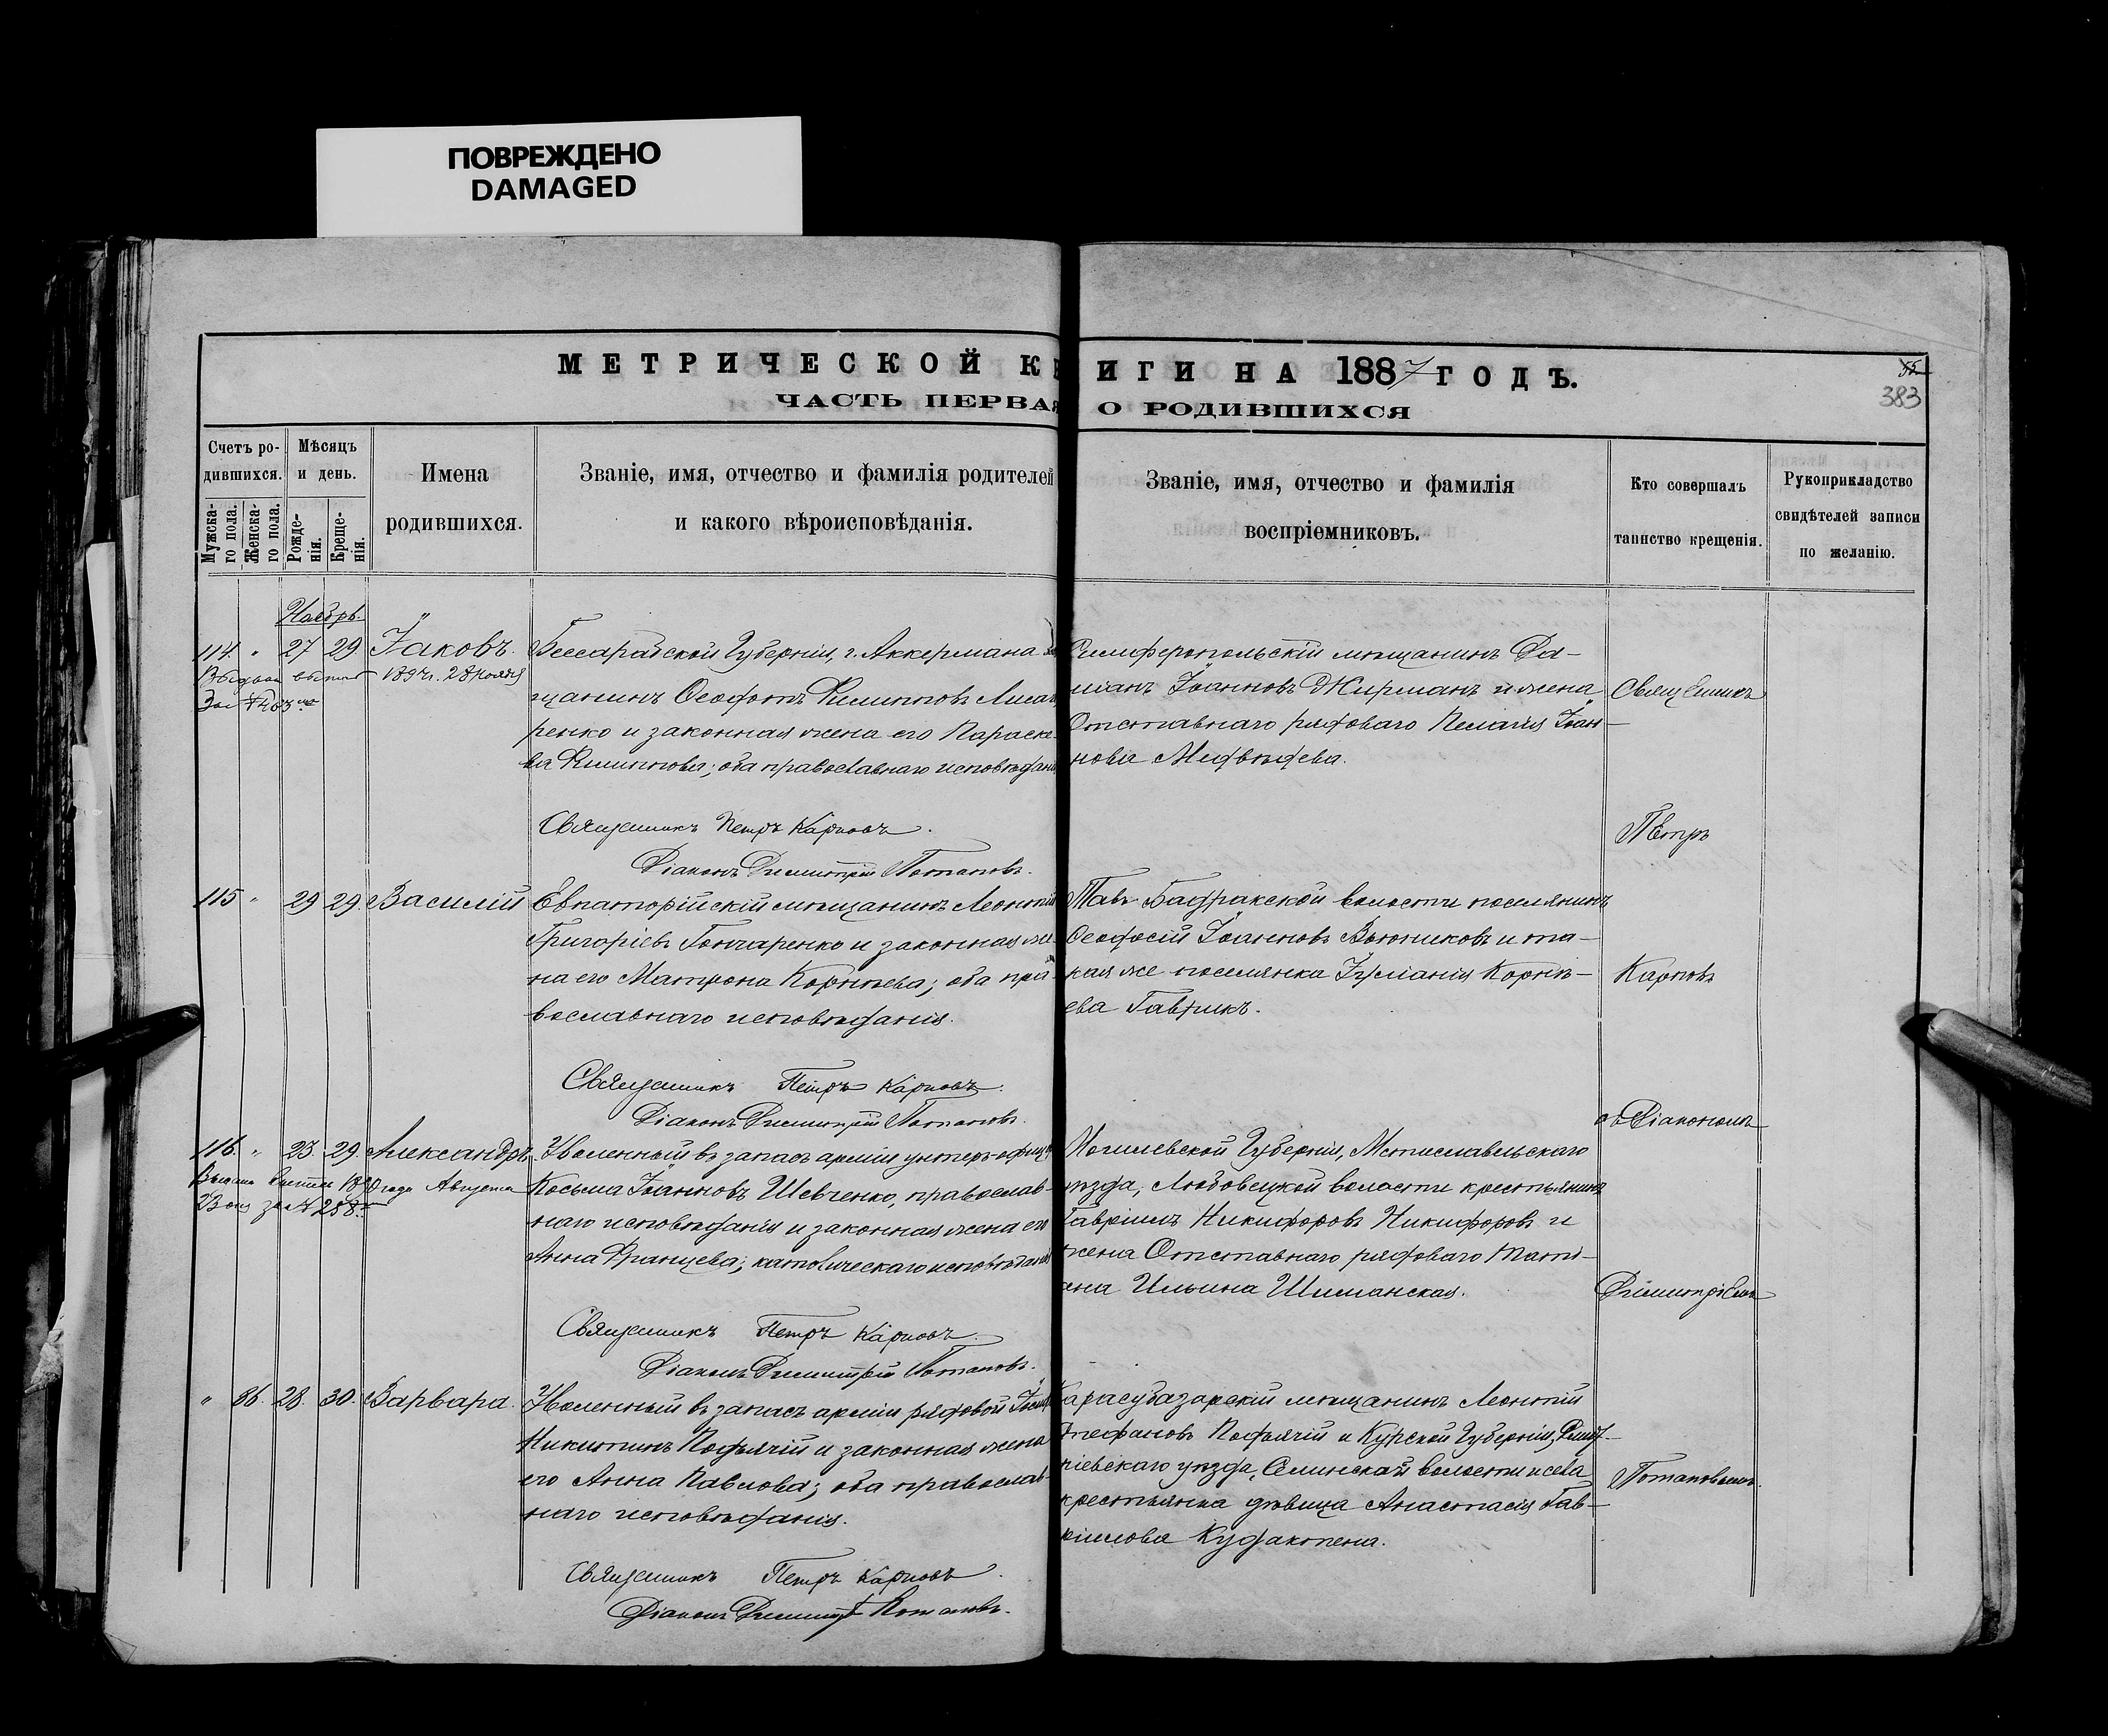 ПОВРЕЖДЕНО
DAMAGED
МЕТРИЧЕСКОЙ КНИГИ НА 1887 ГОДЪ.
ЧАСТЬ ПЕРВАЯ О РОДИВШИХСЯ
55
383
Счетъ ро-
дившихся.
Мужска-
го пола.
Женска-
го пола.
Мѣсяцъ
и день.
Рожде-
нія.
Креще-
нія.
Имена
родившихся.
Званіе, имя, отчество и фамилія родителей
и какого вѣроисповѣданія.
Званіе, имя, отчество и фамилія
воспріемниковъ.
Кто совершалъ
таинство крещенія.
Рукоприкладство
свидѣтелей записи
по желанію.
Ноябрь.
114. " 27 29 Іаковъ.
28 ноября
Бессарабской Губерніи, г. Аккермана
щанинъ Ѳеофотъ Филипповъ
ренко и законная жена его Параске-
ва Филиппова; оба православнаго исповѣдані
Священникъ Петръ Карповъ.
Діаконъ Димитрій Потаповъ.
Симферопольскій мѣщанинъ Да-
міанъ Іоанновъ Жирманъ и жена
Отставнаго рядоваго Пелагія Іоан-
нова Медвѣдева.
115 " 29 29. Василій
Евпаторійскій мѣщанинъ Леонтій
Григорьевъ Гончаренко и законная же-
на его Матрона Корнѣева; оба пра-
вославнаго исповѣданія.
Священникъ Петръ Карповъ.
Діаконъ Димитрій Потаповъ.
Тав. Бадракской волости поселянинъ
Ѳеодосій Іоанновъ Вьюнниковъ и та-
кая же поселянка Іуліанія Корнѣ-
ева Гаврикъ.
116. " 23. 29. Александръ.
Уволенный въ запасъ арміи унтеръ-офиц
Косьма Іоанновъ Шевченко, православ-
наго исповѣданія и законная жена его
Анна Францева; католическаго исповѣданія
Священникъ Петръ Карповъ.
Діаконъ Димитрій Потаповъ.
Могилевской Губерніи, Мстиславльскаго
уѣзда, Любовецкой волости крестьянинъ
Гавріилъ Никифоровъ Никифоровъ и
жена Отставнаго рядоваго Таті-
ана Ильина Шиманская.
" 86. 28. 30. Варвара.
Уволенный въ запасъ арміи рядовой
Никитинъ Подъячій и законная жена
его Анна Павлова; оба православ-
наго исповѣданія.
Священникъ Петръ Карповъ.
Діаконъ Димитрій Потаповъ.
Карасубазарскій мѣщанинъ Леонтій
Стефановъ Подъячій и Курской Губерніи,
уѣзда, волости и села
крестьянка дѣвица Анастасія Гав-
ріилова
Священникъ
Петръ
Карповъ
съ Діакономъ
Димитріемъ
Потаповымъ.